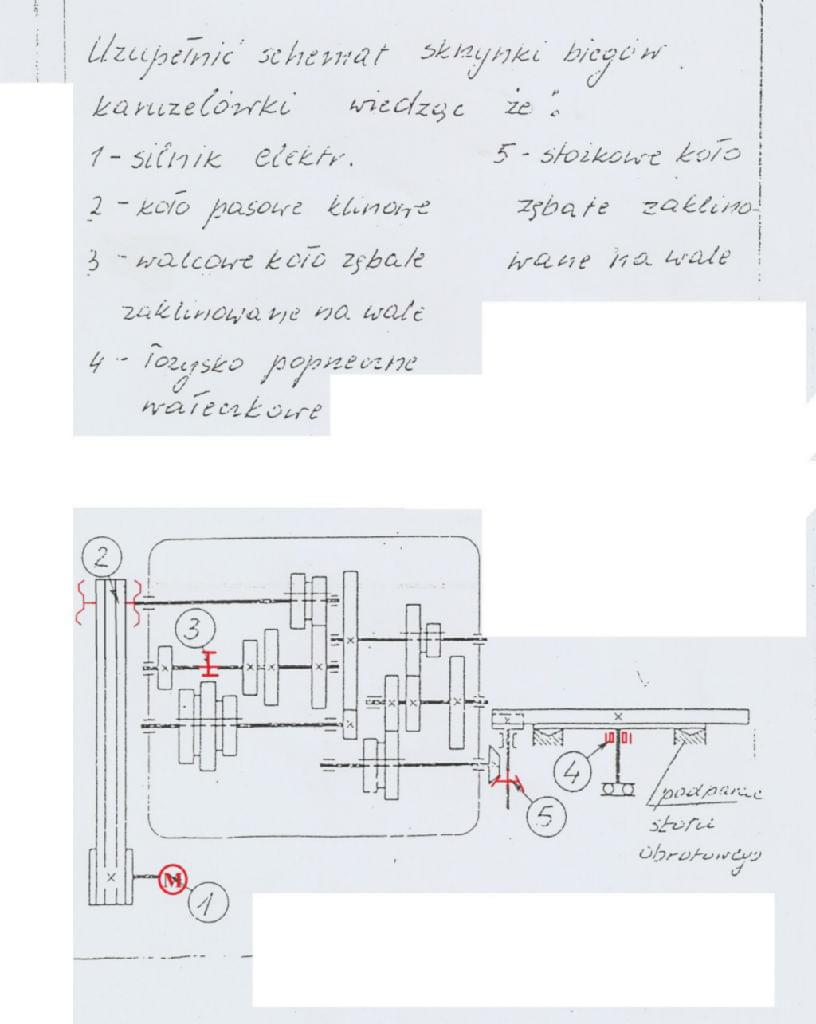 Uzupełnić schemat skrzynki biegów
karuzelówki wiedząc że:
1 - silnik elektr.
2 - koło pasowe klinowe
3 - walcowe koło zębate
zaklinowane na wale
4 - łożysko poprzeczne
wałeczkowe
5 - stożkowe koło
zębate zaklino-
wane na wale
2
3
M
1
4
5
podparcie
stołu
obrotowego